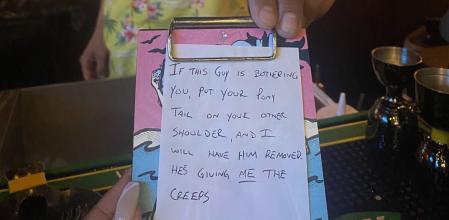 IF THIS GUY IS BOTHERING
YOU, PUT YOUR PONY
TAIL ON YOUR OTHER
SHOULDER, AND I
WILL HAVE HIM REMOVED.
HE'S GIVING ME THE
CREEPS